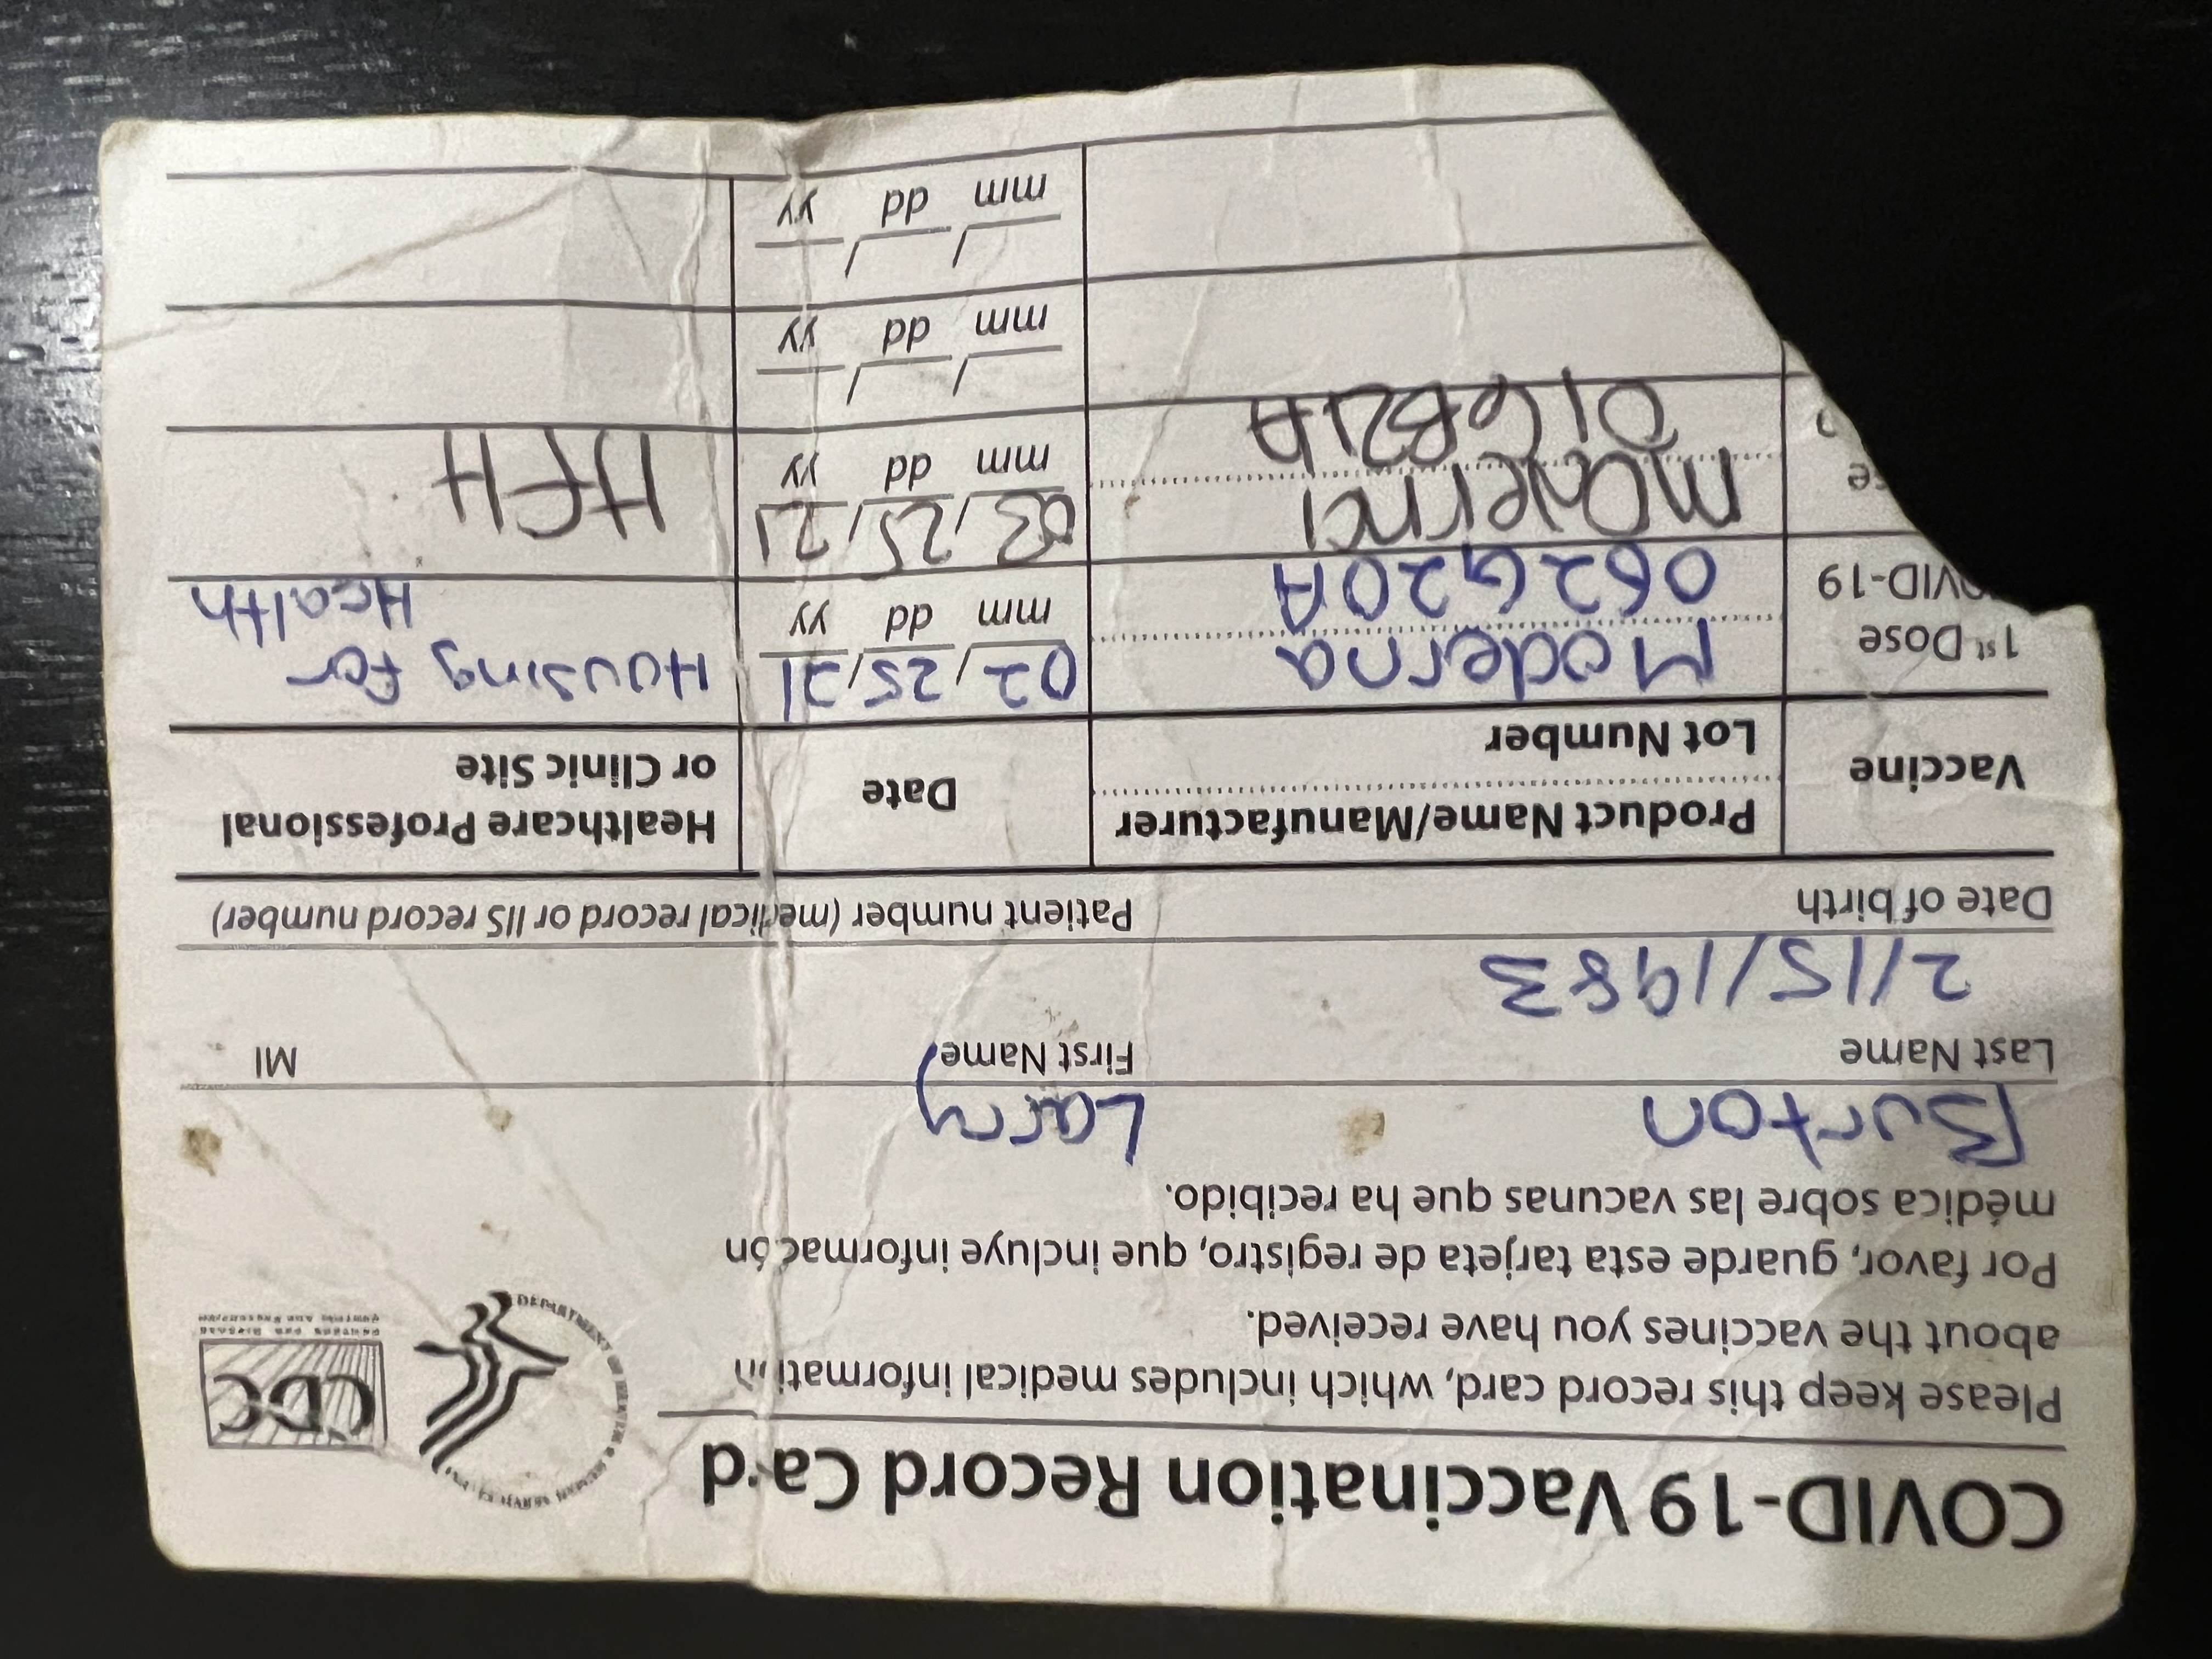 COVID-19 Vaccination Record Card
Please keep this record card, which includes medical information
about the vaccines you have received.
Por favor, guarde esta tarjeta de registro, que incluye información
médica sobre las vacunas que ha recibido.
CDC
Burton Larry
Last Name First Name MI
2/15/1983
Date of birth Patient number (medical record or IIS record number)
Vaccine Product Name/Manufacturer Date Healthcare Professional
Lot Number or Clinic Site
1st Dose Moderna 02/25/21 Housing for
COVID-19 062G20A mm dd yy Health
Moderna 03/25/21 HFH
016B21A mm dd yy
mm dd yy
mm dd yy